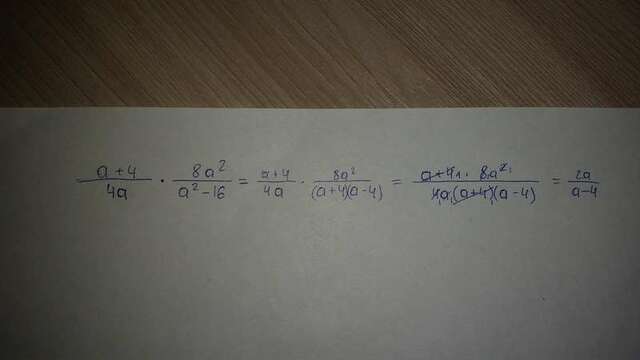 (a+4)/(4a) · (8a²)/(a²-16) = (a+4)/(4a) · (8a²)/((a+4)(a-4)) = (a+4 · 8a²)/(4a(a+4)(a-4)) = (2a)/(a-4)